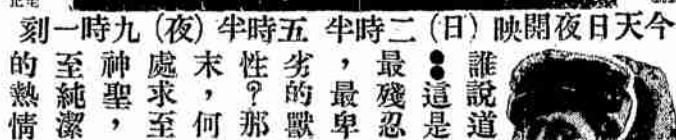 今天日夜開映(日)二時半 五時半(夜)九時一刻
誰說道
●●這是
最殘忍
，最卑
劣的獸
性？那
末，何
處求至
神聖，
至純潔
的熱情